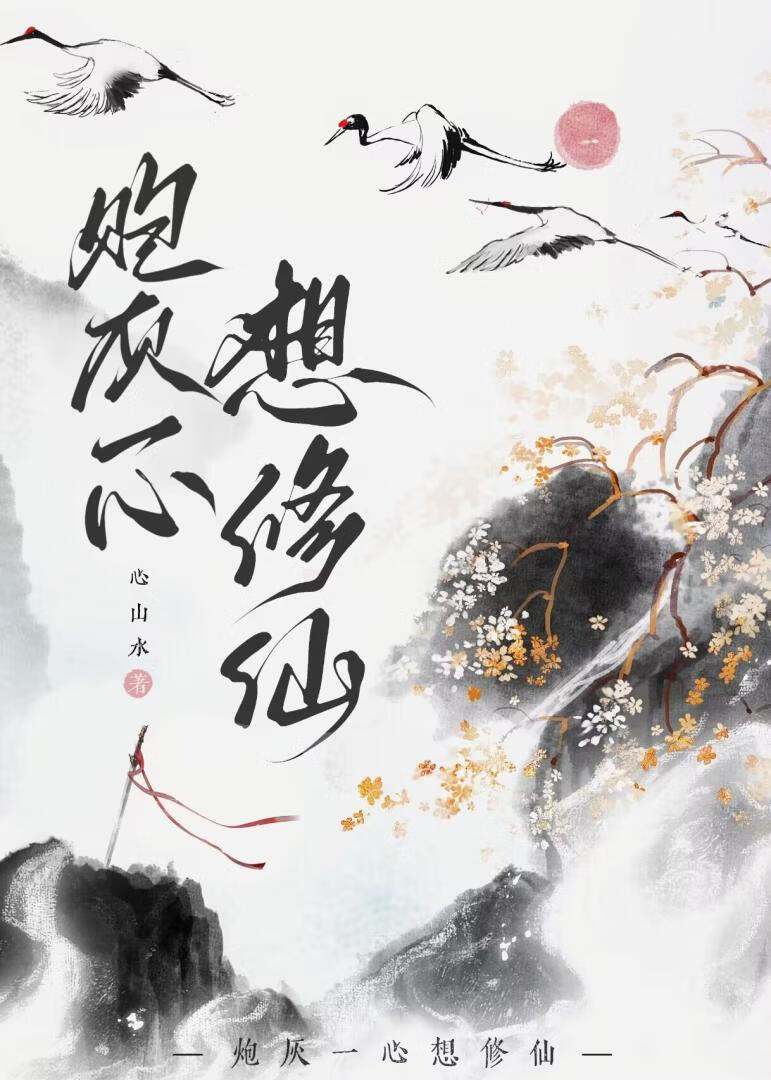 炮灰一心
想修仙
心山水 著
— 炮灰一心想修仙 —